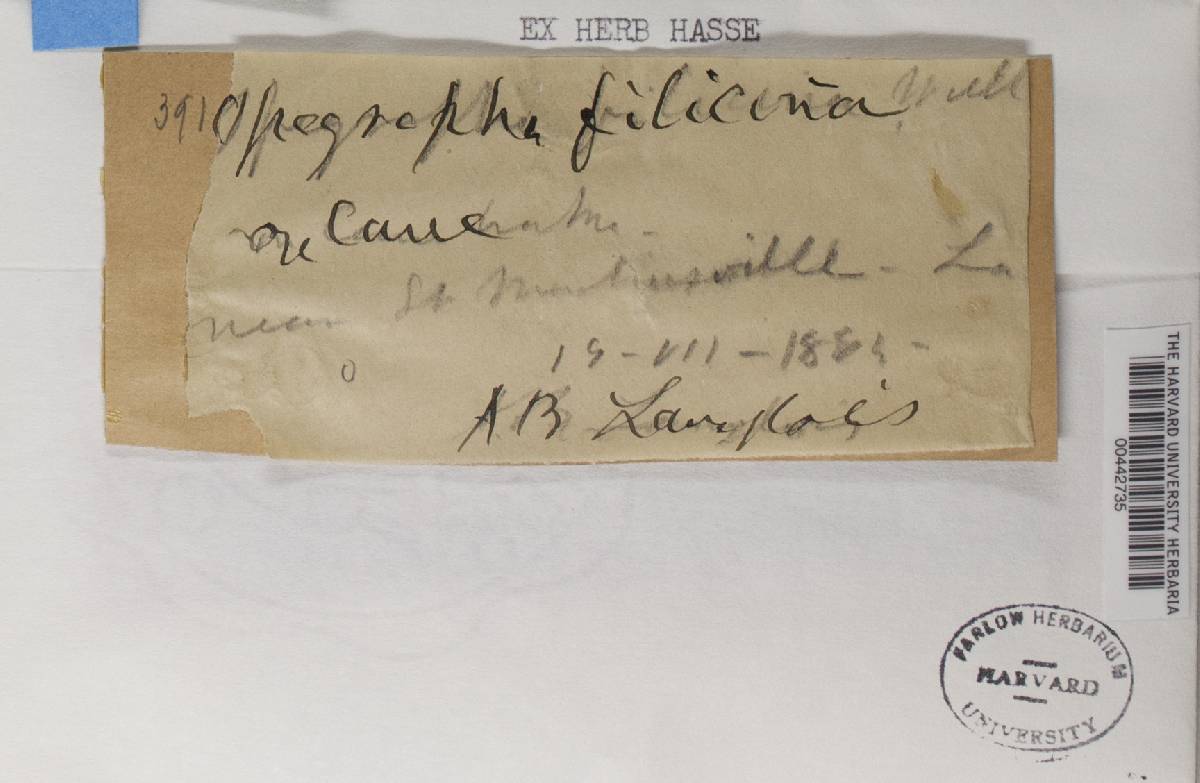 EX HERB HASSE
391 Opegrapha filicina
on Cane
near St Martinsville - La
AB Langlois
THE HARVARD UNIVERSITY HERBARIA
00442735
FARLOW HERBARIUM
HARVARD
UNIVERSITY